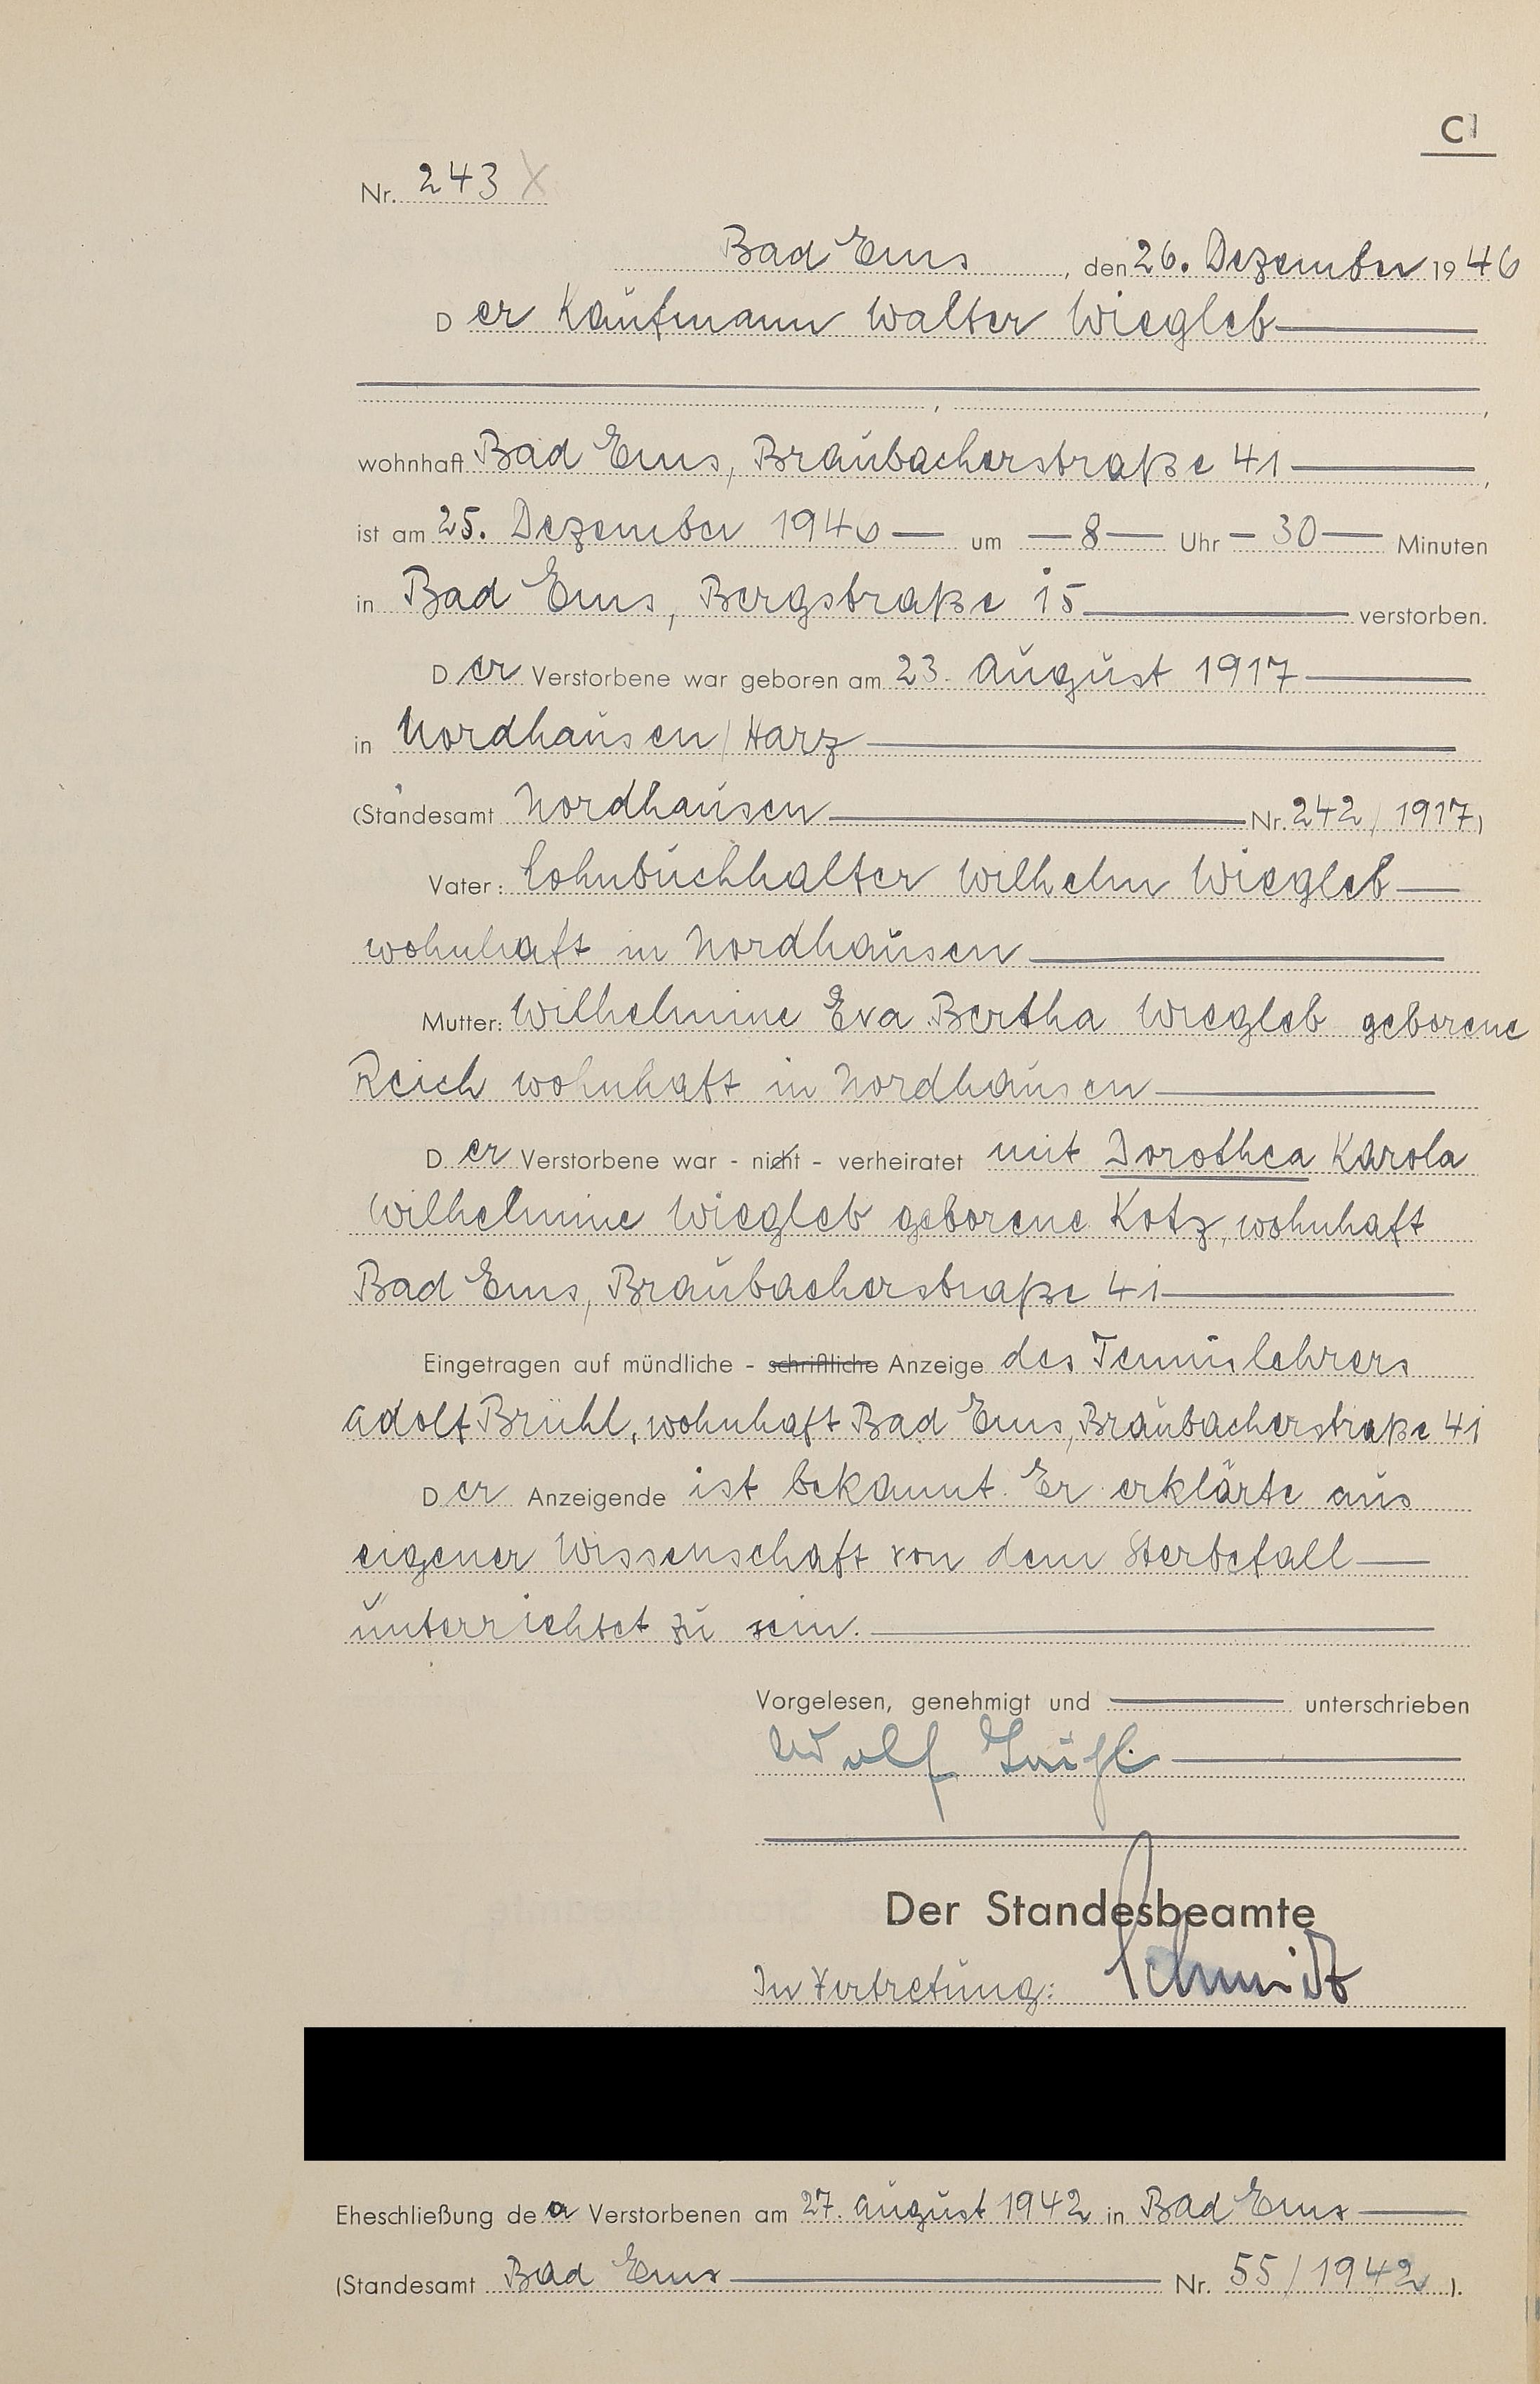 C
Nr. 243
Bad Ems, den 26. Dezember 1946
Der Kaufmann Walter Wiegleb
wohnhaft Bad Ems, Braubacherstraße 41,
ist am 25. Dezember 1946 um 8 Uhr 30 Minuten
in Bad Ems, Bergstraße 15 verstorben.
Der Verstorbene war geboren am 23. August 1917
in Nordhausen/Harz
(Standesamt Nordhausen Nr. 242/1917)
Vater: Lohnbuchhalter Wilhelm Wiegleb
wohnhaft in Nordhausen
Mutter: Wilhelmine Eva Bertha Wiegleb geborene
Reich wohnhaft in Nordhausen
Der Verstorbene war - nicht - verheiratet mit Dorothea Karola
Wilhelmine Wiegleb geborene Kotz, wohnhaft
Bad Ems, Braubacherstraße 41
Eingetragen auf mündliche - schriftliche Anzeige des Tennislehrers
Adolf Brühl, wohnhaft Bad Ems, Braubacherstraße 41
Der Anzeigende ist bekannt. Er erklärte aus
eigener Wissenschaft von dem Sterbefall
unterrichtet zu sein.
Vorgelesen, genehmigt und unterschrieben
Adolf Brühl.
Der Standesbeamte
In Vertretung: Schmidt
Eheschließung de Verstorbenen am 27. August 1942 in Bad Ems
(Standesamt Bad Ems Nr. 55/1942).